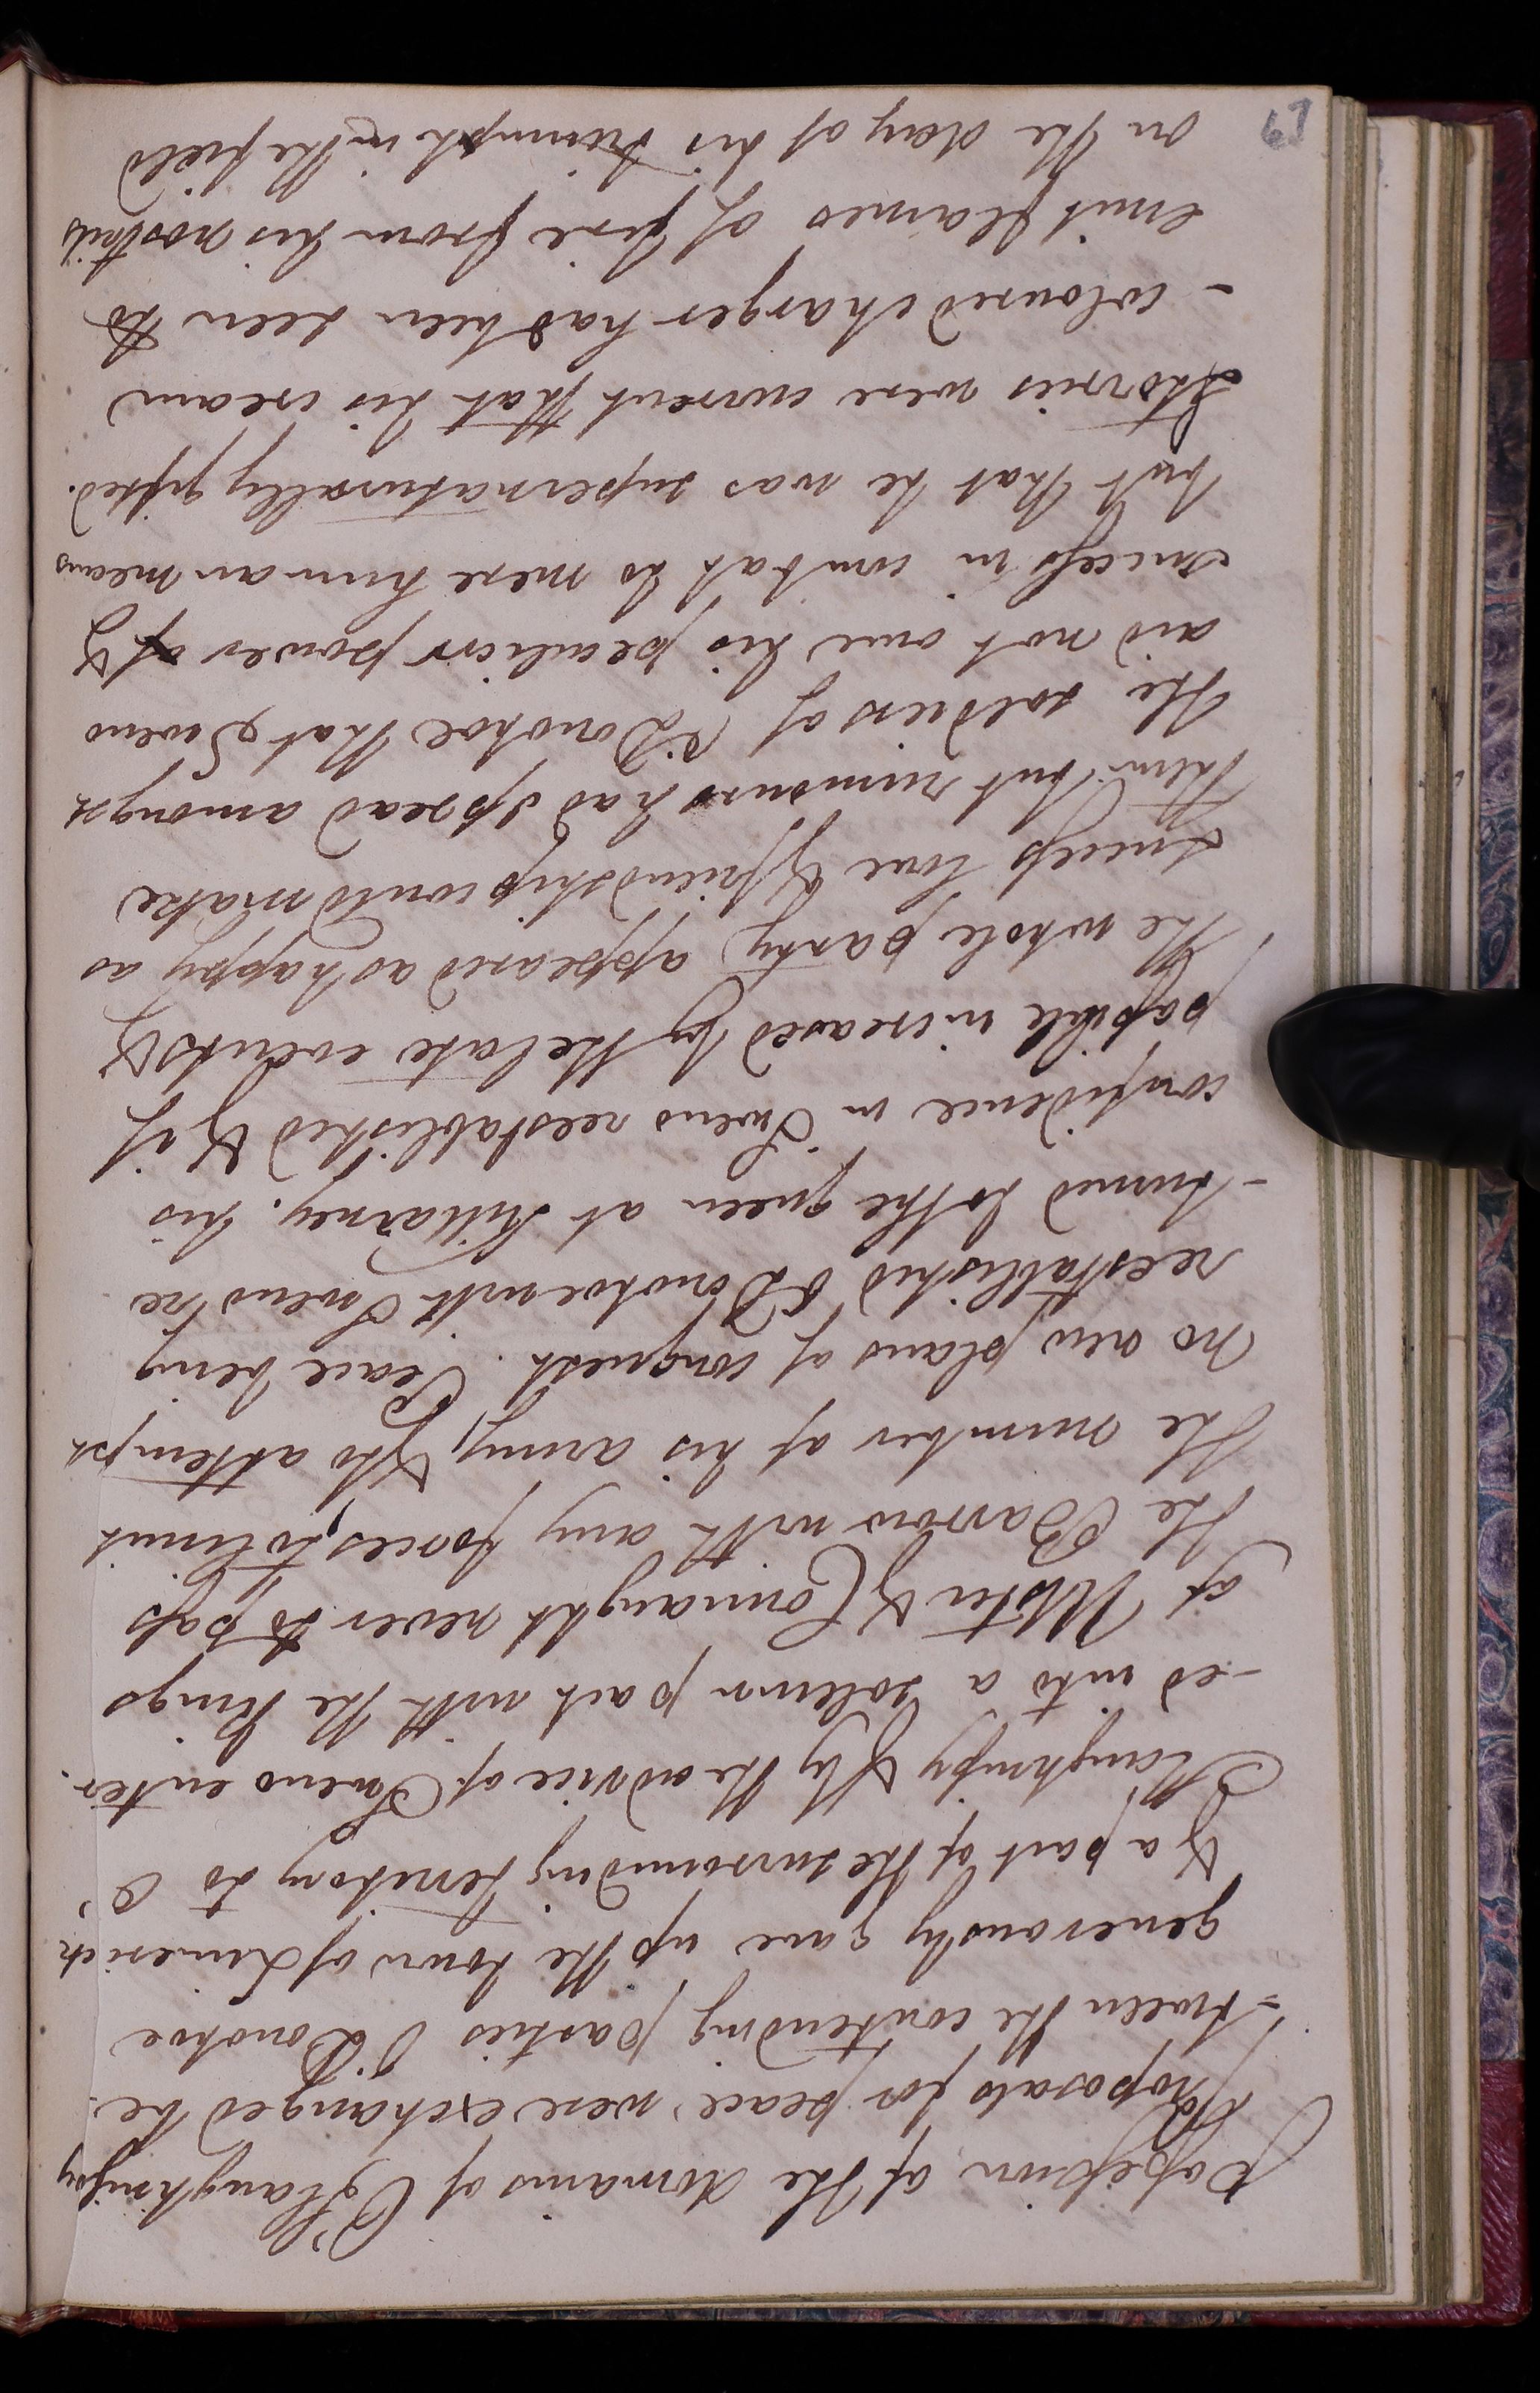 possession of the domains of O'Slaughnifsy
Proposals for peace, were exchanged be-
-tween the contending parties O'Donohoe
generously gave up the town of Limerick
& a part of the surrounding territory to O'
Slaughnifsy & by the advice of Sweno enter-
-ed into a solemn pact with the Kings
of Ulster & Connaught never to pass
the Barrow with any forces, to limit
the number of his army, & to attempt
no new plans of conquest. Peace being
reestablished O'Donohoe with Sweno re
-turned to the queen at Killarney. his
confidence in Sweno reestablished & if
possible increased by the late events &
the whole party appeared as happy as
success love & friendship could make
them. but rumours had spread amongst
the soldiers of O'Donohoe that Sweno
did not owe his peculiar power of &
success in combat to mere human means
but that he was supernaturally gifted.
Stories were current that his cream
-coloured charger had been seen to
emit flames of fire from his nostrils
on the day of his triumph in the field
67